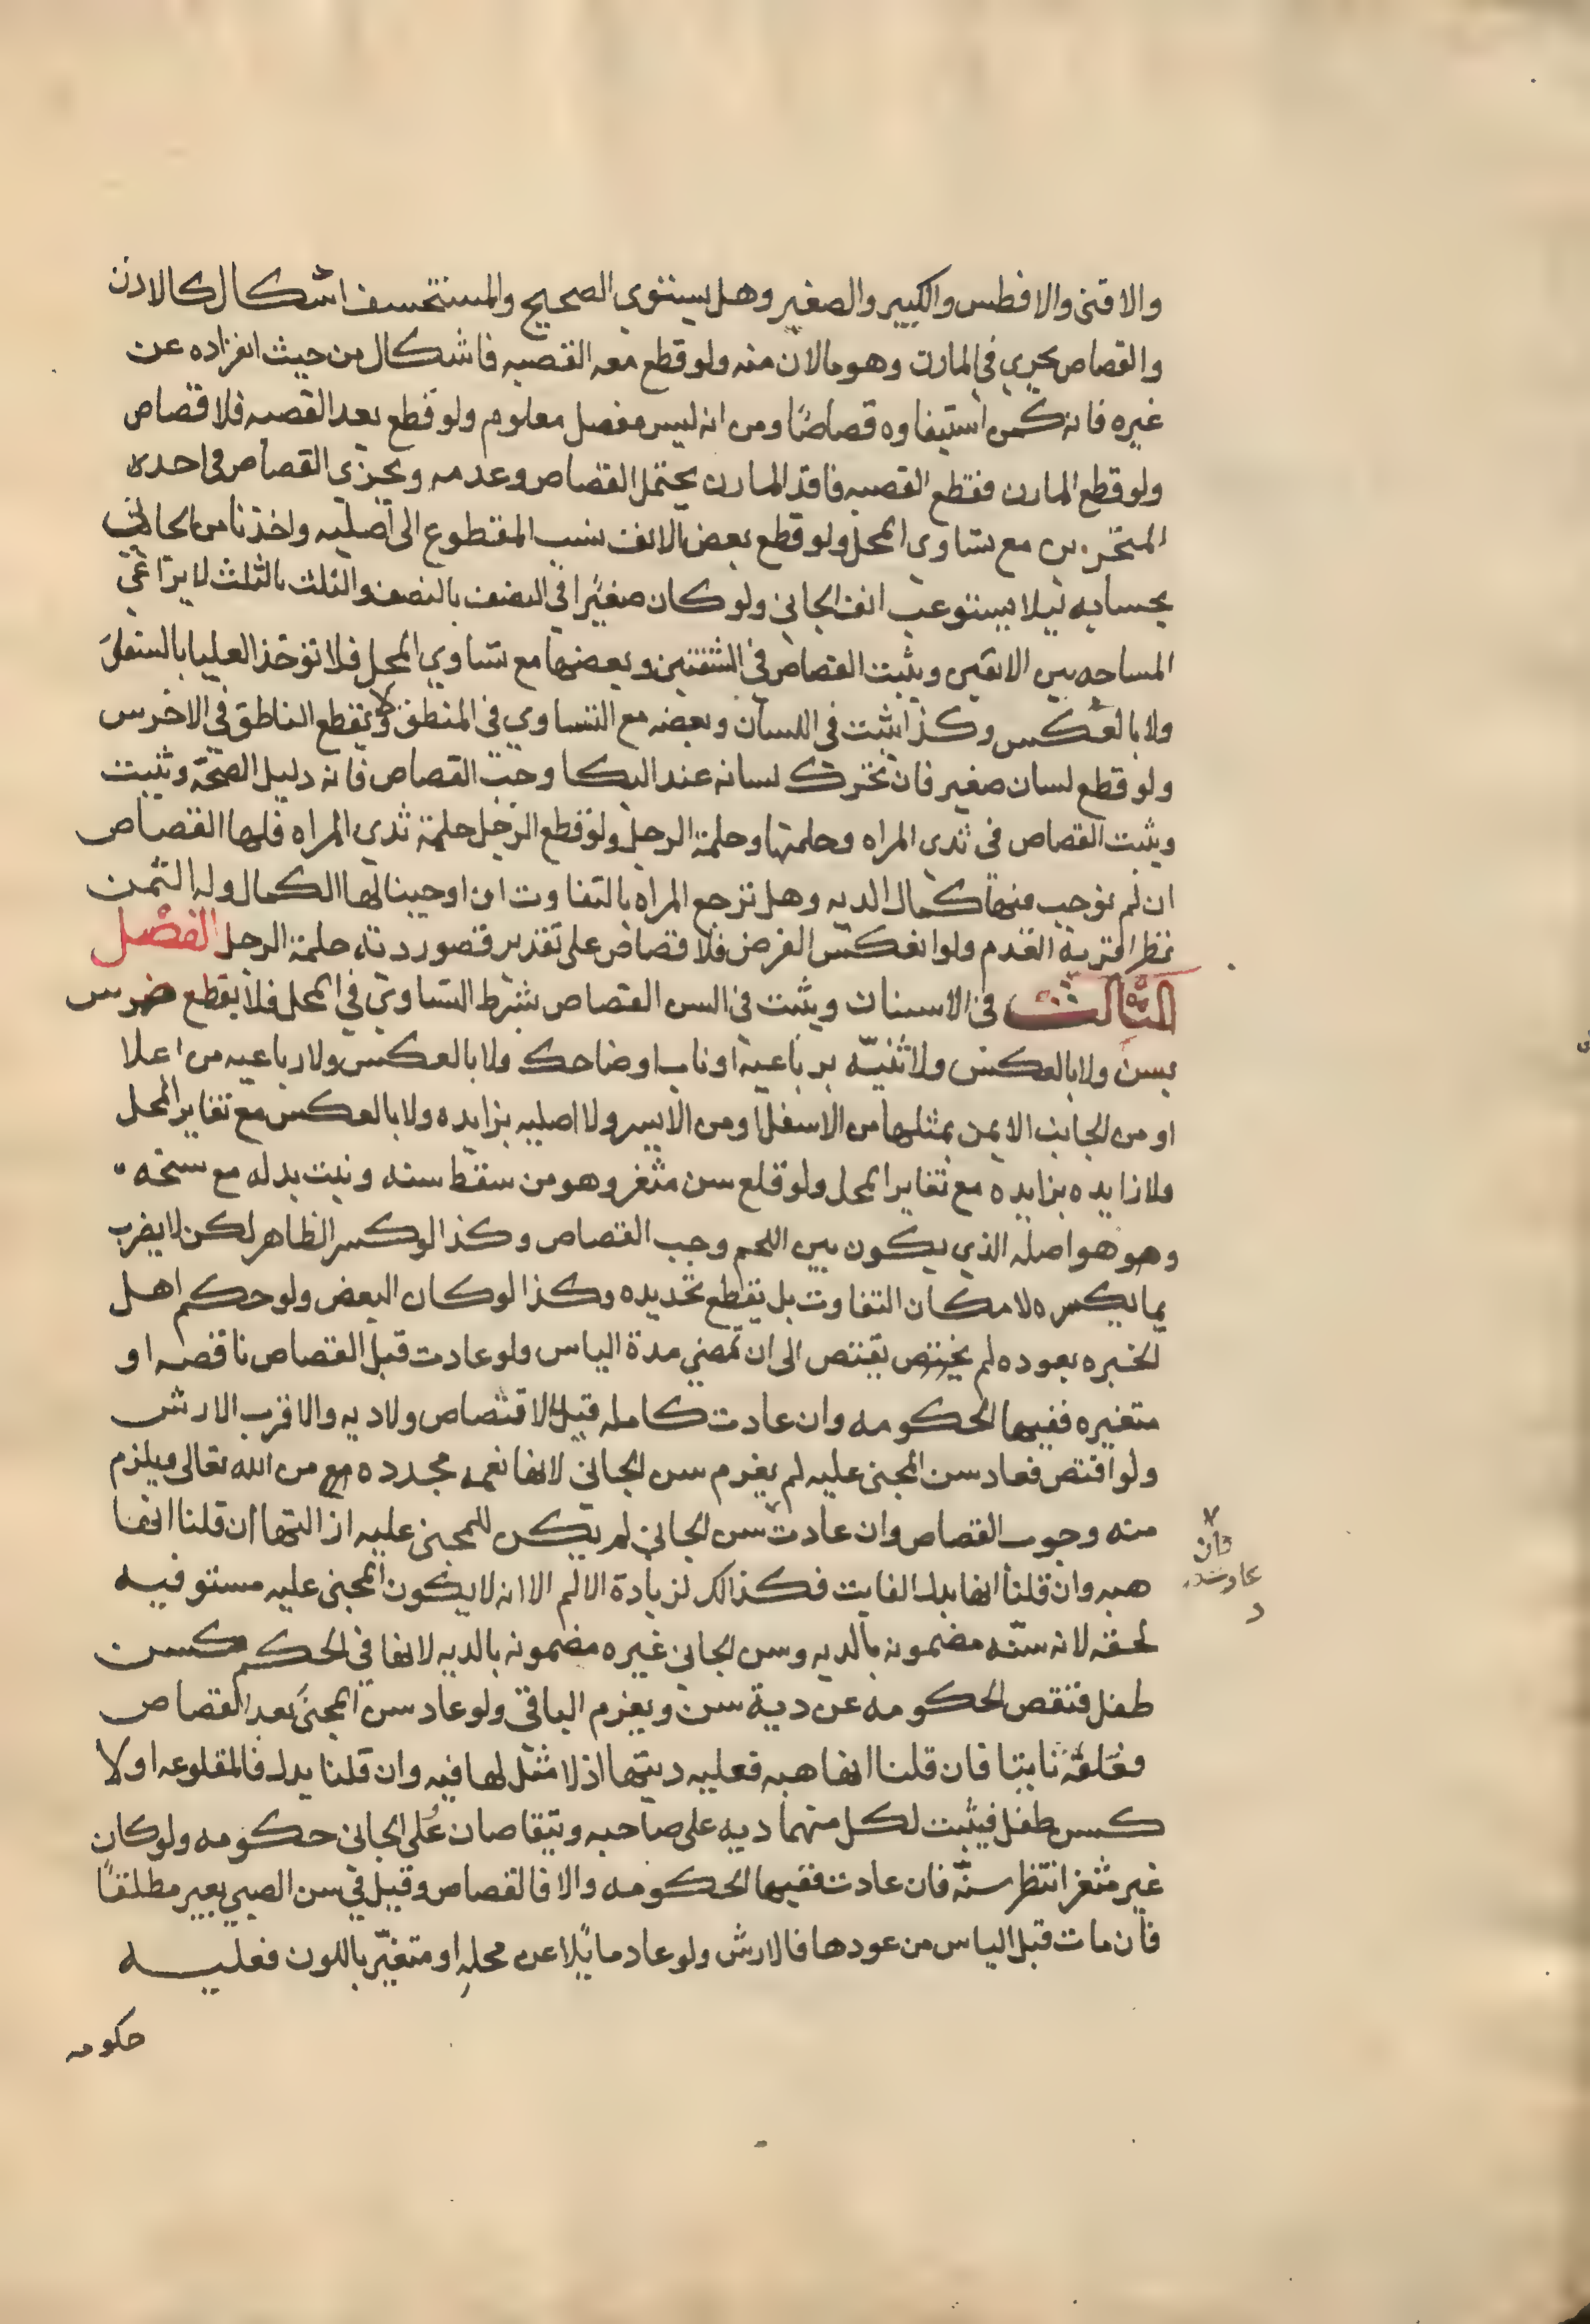 والاقنى والافطس والكبير والصغير وهل يستوى الصحيح والمستحشف اشكال كالاذن
والقصاص يجري في المارن وهو مالان منه ولو قطع معه القصبه فاشكال من حيث انفراده عن
غيره فانه كمن استيفاوه قصاصًا ومن انه ليس مفصل معلوم ولو قطع بعد القصبه فلا قصاص
ولو قطع المارن فقطع القصبه فاقد المارن يحتمل القصاص وعدمه ويجزى القصاص في احده
المنخرين مع تساوى المحل ولو قطع بعض الانف نسب المقطوع الى اصليه واخذنا من الجانى
بحسابه ليلا يستوعب انف الجانى ولو كان صغيرًا في النصف بالنصف والثلث بالثلث لا يراعى
المساحه بين الانفين ويثبت القصاص في الشفتين وبعضها مع تساوى المحل فلا توخذ العليا بالسفلى
ولا بالعكس وكذا يثبت في اللسان وبعضه مع التساوي في المنطق ولا يقطع الناطق في الاخرس
ولو قطع لسان صغير فان تحرك لسانه عند البكا وجب القصاص فانه دليل الصحة وتثبت
ويثبت القصاص في ثدى المراه وحلمتها وحلمة الرجل ولو قطع الرجل حلمة ثدى المراه فلها القصاص
ان لم نوجب منها كمال الديه وهل ترجع المراه بالتفاوت ان اوجبنا لها الكمال وله الثمن
نظر اقربه القدم ولو انعكس الفرض فلا قصاص على تقدير قصور دية حلمة الرجل الفصل
الثالث في الاسنان ويثبت في السن القصاص بشرط التساوي في المحل فلا يقطع ضرس
بسن ولا بالعكس ولا ثنيّه برباعية او ناب او ضاحك ولا بالعكس ولا رباعيه من اعلا
او من الجانب الايمن بمثلها من الاسفل او من الايسر ولا اصليه بزايده ولا بالعكس مع تغاير المحل
ولا زايده بزايده مع تغاير المحل ولو قلع سن مثغر وهو من سقط سنه ونبت بدله مع سنخه
وهو هو اصله الذي يكون بين اللحم وجب القصاص وكذا لو كسر الظاهر لكن لا يضرب
بما يكسره لا مكان التفاوت بل يقطع بحديده وكذا لو كان البعض ولو حكم اهل
الخبره بعوده لم يقتص الى ان تمضي مدة الياس ولو عادت قبل القصاص ناقصه او
متغيره ففيها الحكومه وان عادت كامله قبل الاقتصاص ولا ديه والاقرب الارش
ولو اقتص فعاد سن المجنى عليه لم يغرم سن الجاني لانها نعمه مجدده من الله تعالى ويلزم
منه وجوب القصاص وان عادت سن الجاني لم يكن للمجنى عليه ازالتها ان قلنا انها
هبه وان قلنا انها بدل الفايت فكذالك لزيادة الالم الا انه لا يكون المجنى عليه مستوفيه
لحقه لانه سنّه مضمونه بالديه وسن الجاني غيره مضمونه بالديه لانها في الحكم كسن
طفل فتنقص الحكومه عن دية سن ويغرم الباقى ولو عاد سن المجنى بعد القصاص
فقلعه ثانيا فان قلنا انها هبه فعليه ديتها اذ لا مثل لها فيه وان قلنا بدل فالمقلوعه اولا
كسن طفل فيثبت لكل منهما ديه على صاحبه ويتقاصان على الجانى حكومه ولو كان
غير مثغر انتظر سنّه فان عادت ففيها الحكومه والا فالقصاص وقيل في سن الصبي بعير مطلقًا
فان مات قبل الياس من عودها فالارش ولو عاد مايلا عن محله او متغيّر باللون فعليه
حكومه
فان
عادت